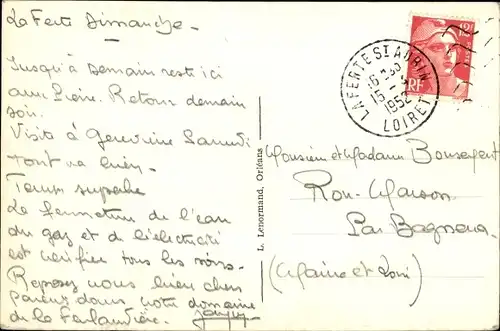 La Ferté Dimanche -
Jusqu'à demain resti ici
aux Retour demain
soir.
Visite à Genevieve Samedi
Tout va bien.
Temps superbe
La fermeture de l'eau
du gaz et de l'électricité
est vérifiée tous les soirs.
Reposez vous bien chers
Parents dans votre domaine
de la
L. Lenormand, Orléans
LA FERTE ST AUBIN
16-30
15 -
1952
LOIRET
12F
RF
Monsieur et Madame Bonsergent
Par Bagneux
(Maine et Loire)